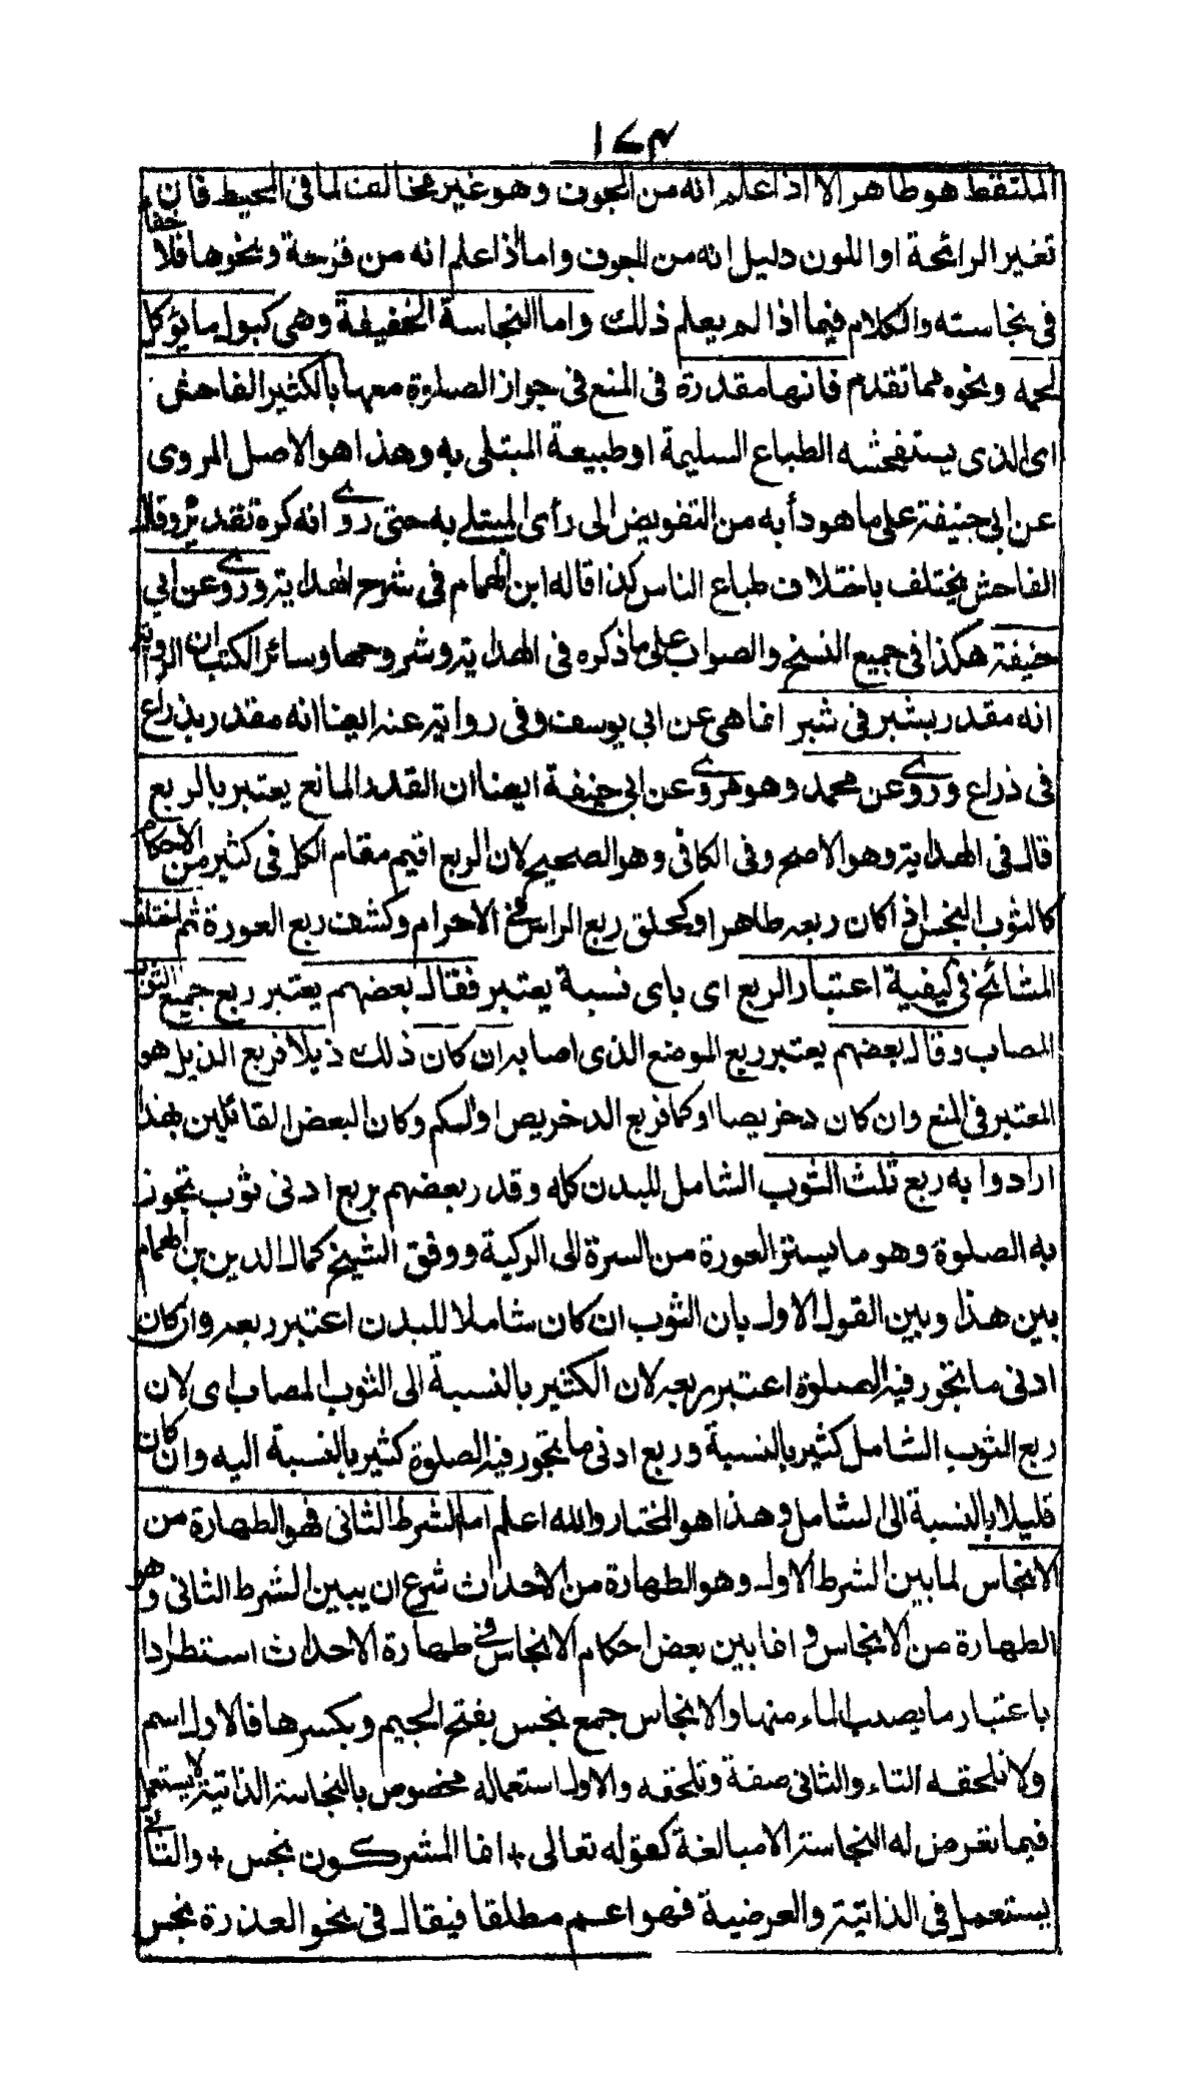 ١٧٤
الملتقط هو طاهر الا اذا علم انه من الجوف وهو غير مخالف لما فى المحيط فان
تغير الرائحة او اللون دليل انه من الجوف واما اذا علم انه من قرحة ونحوها فلا خفاء
فى نجاسته والكلام فيما اذا لم يعلم ذلك واما النجاسة الخفيفة وهى كبول ما يؤكل
لحمه ونحوه مما تقدم فانها مقدرة فى المنع فى جواز الصلوة معها بالكثير الفاحش
اى الذى يستفحشه الطباع السليمة او طبيعة المبتلى به وهذا هو الاصل المروى
عن ابى حنيفة على ما هو دأبه من التفويض الى رأى المبتلى به حتى روى انه كره تقديره وقال
الفاحش يختلف باختلاف طباع الناس كذا قاله ابن الهمام فى شرح الهداية وروى عن ابى
حنيفة هكذا فى جميع النسخ والصواب على ما ذكره فى الهداية وشروحها وسائر الكتب ان الرواية
انه مقدر بشبر فى شبر انما هى عن ابى يوسف وفى رواية عنه ايضا انه مقدر بذراع
فى ذراع وروى عن محمد وهو مروى عن ابى حنيفة ايضا ان القدر المانع يعتبر بالربع
قال فى الهداية وهو الاصح وفى الكافى وهو الصحيح لان الربع اقيم مقام الكل فى كثير من الاحكام
كالثوب النجس اذا كان ربعه طاهرا وكحلق ربع الراس فى الاحرام وكشف ربع العورة ثم اختلف
المشائخ فى كيفية اعتبار الربع اى باى نسبة يعتبر فقال بعضهم يعتبر ربع جميع الثوب
المصاب وقال بعضهم يعتبر ربع الموضع الذى اصابه ان كان ذلك ذيلا فربع الذيل هو
المعتبر فى المنع وان كان دخريصا او كما فربع الدخريص او الكم وكان البعض القائلين بهذا
ارادوا به ربع ثلث الثوب الشامل للبدن كله وقدر بعضهم بربع ادنى ثوب تجوز
به الصلوة وهو ما يستر العورة من السرة الى الركبة ووفق الشيخ كمال الدين بن الهمام
بين هذا وبين القول الاول بان الثوب ان كان شاملا للبدن اعتبر ربعه وان كان
ادنى ما تجوز فيه الصلوة اعتبر ربعه لان الكثير بالنسبة الى الثوب المصاب اى لان
ربع الثوب الشامل كثير بالنسبة وربع ادنى ما تجوز فيه الصلوة كثير بالنسبة اليه وان كان
قليلا بالنسبة الى الشامل وهذا هو المختار والله اعلم اما الشرط الثانى فهو الطهارة من
الانجاس لما بين الشرط الاول وهو الطهارة من الاحداث شرع ان يبين الشرط الثانى وهو
الطهارة من الانجاس وانما بين بعض احكام الانجاس فى طهارة الاحداث استطرادا
باعتبار ما يصيب الماء منها والانجاس جمع نجس بفتح الجيم وبكسرها فالاول اسم
ولا تلحقه التاء والثانى صفة وتلحقه والاول استعماله مخصوص بالنجاسة الذاتية لا يستعمل
فيما تعرض له النجاسة الا مبالغة كقوله تعالى + انما المشركون نجس + والثانى
يستعمل فى الذاتية والعرضية فهو اعم مطلقا فيقال فى نحو العذرة نجس